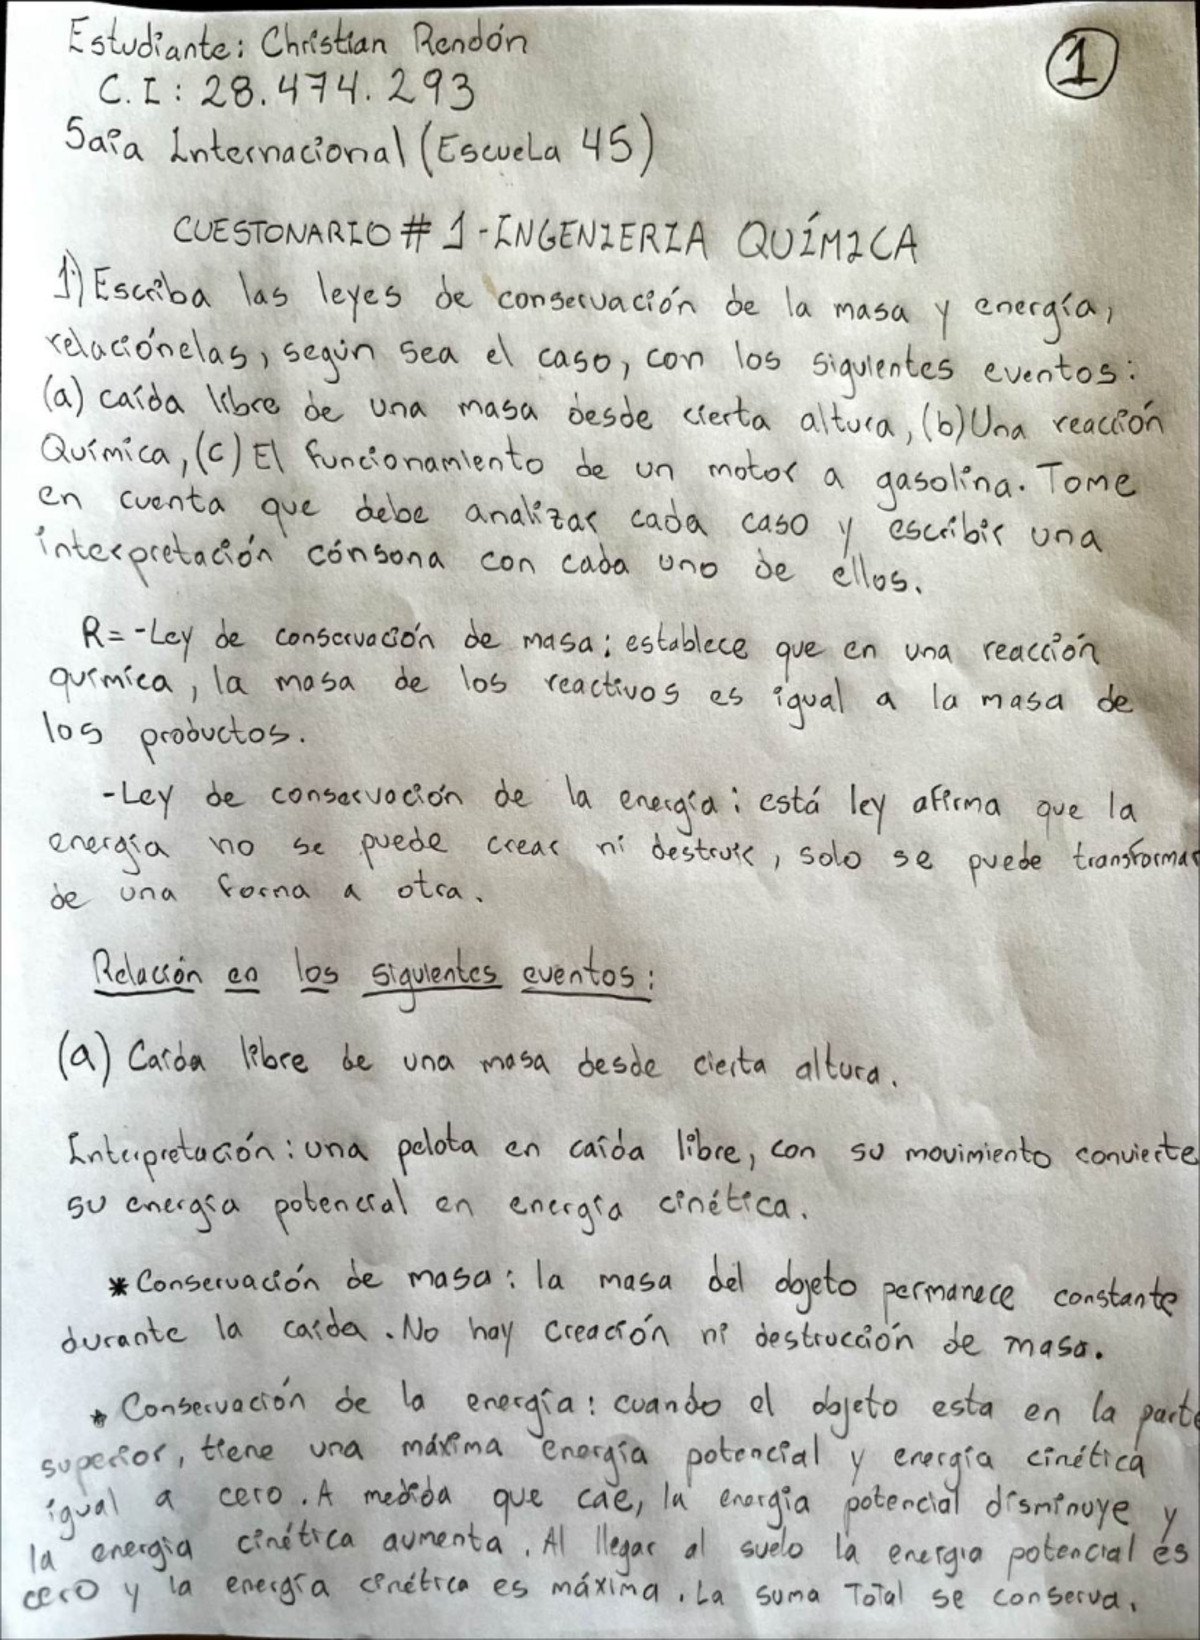 Estudiante: Christian Rendón
1
C.I: 28.474.293
Saia Internacional (Escuela 45)
CUESTONARIO # 1 - INGENIERIA QUÍMICA
1) Escriba las leyes de conservación de la masa y energía,
relaciónelas, según sea el caso, con los siguientes eventos:
(a) caída libre de una masa desde cierta altura, (b) Una reacción
Química, (c) El funcionamiento de un motor a gasolina. Tome
en cuenta que debe analizar cada caso y escribir una
interpretación cónsona con cada uno de ellos.
R= -Ley de conservación de masa: establece que en una reacción
química, la masa de los reactivos es igual a la masa de
los productos.
-Ley de conservación de la energía: está ley afirma que la
energía no se puede crear ni destruir, solo se puede transformar
de una forma a otra.
Relación en los siguientes eventos:
(a) Caída libre de una masa desde cierta altura.
Interpretación: una pelota en caída libre, con su movimiento convierte
su energía potencial en energía cinética.
* Conservación de masa: la masa del objeto permanece constante
durante la caída. No hay creación ni destrucción de masa.
* Conservación de la energía: cuando el objeto esta en la parte
superior, tiene una máxima energía potencial y energía cinética
igual a cero. A medida que cae, la energía potencial disminuye y
la energia cinética aumenta. Al llegar al suelo la energia potencial es
cero y la energía cinética es máxima. La suma Total se conserva.